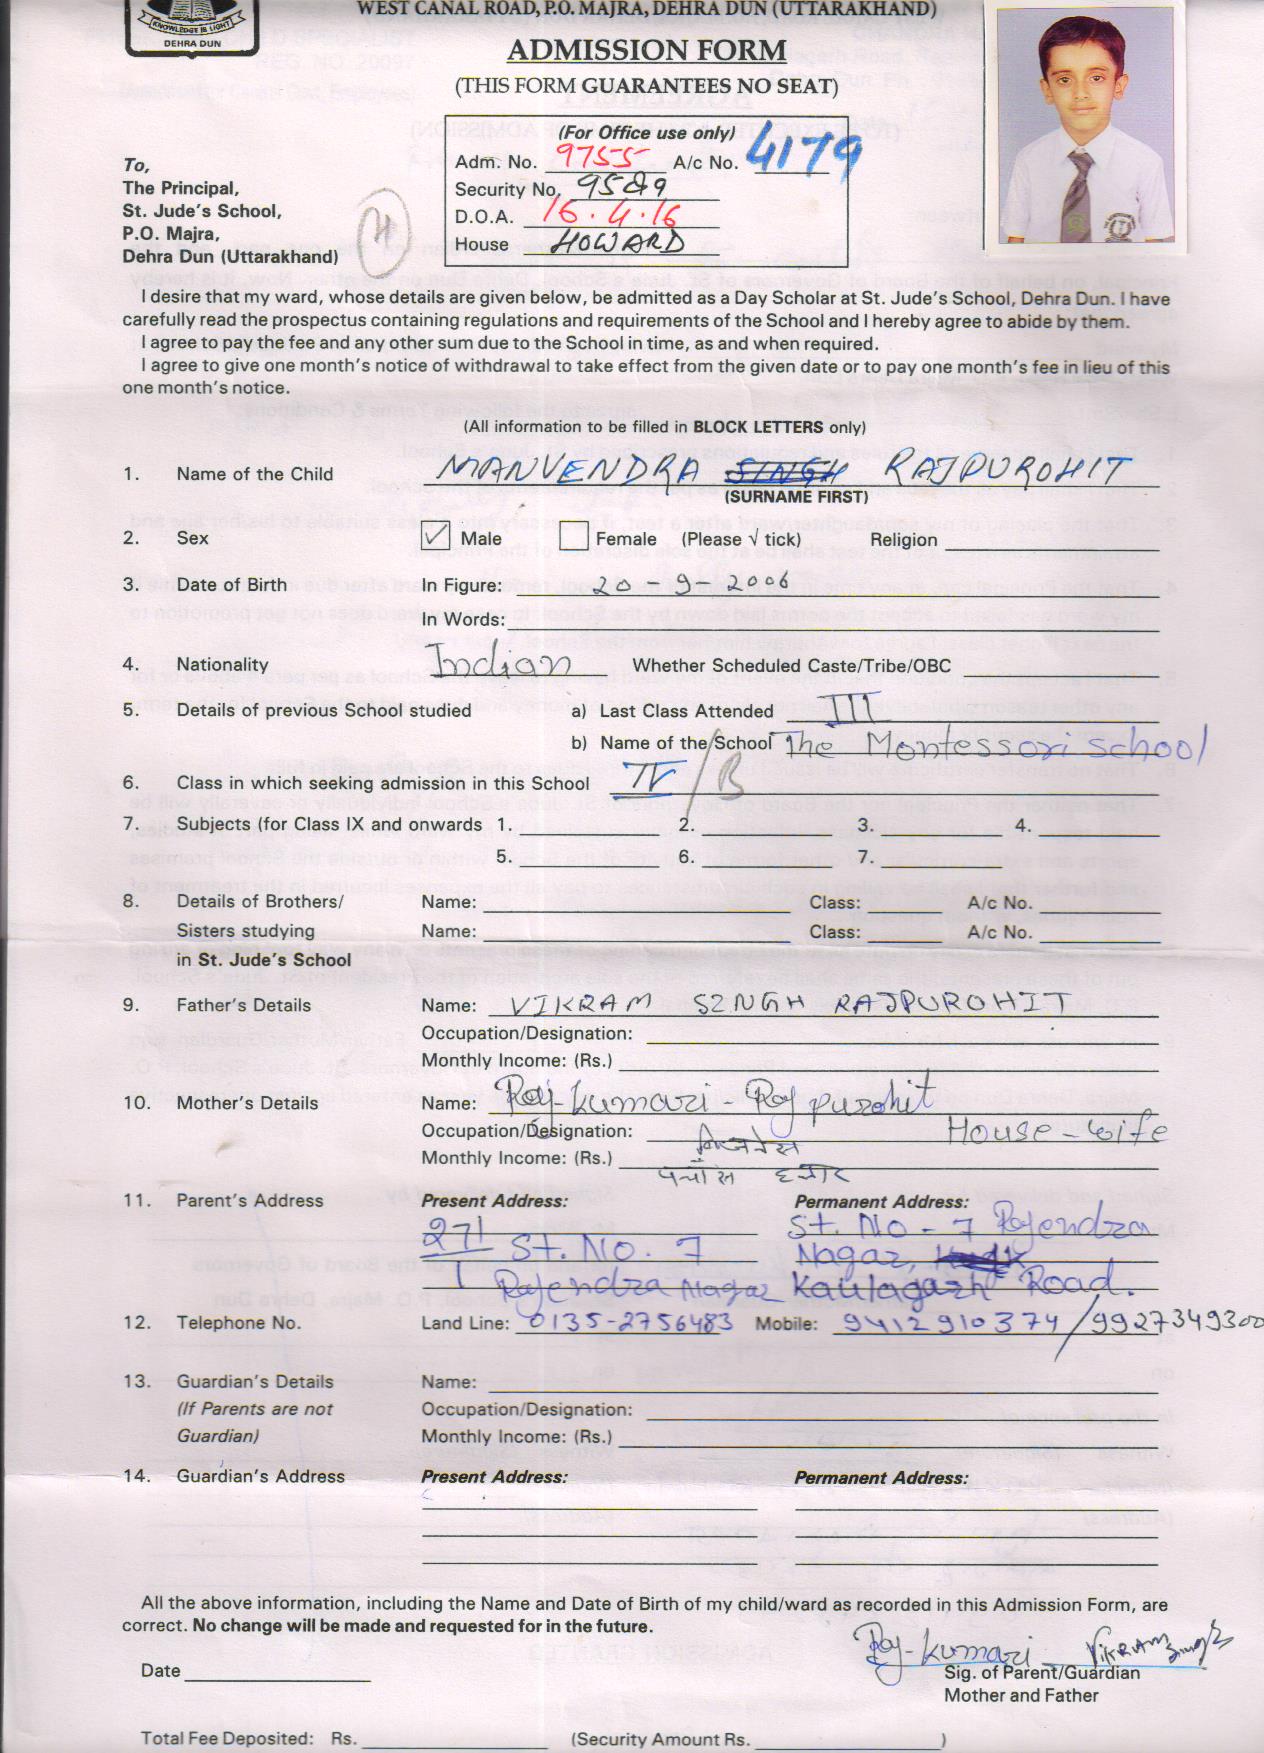 KNOWLEDGE IS LIGHT
DEHRA DUN
WEST CANAL ROAD, P.O. MAJRA, DEHRA DUN (UTTARAKHAND)
ADMISSION FORM
(THIS FORM GUARANTEES NO SEAT)
(For Office use only)
Adm. No. 9755 A/c No. 4179
Security No. 9589
D.O.A. 16.4.16
House HOWARD
To,
The Principal,
St. Jude's School,
P.O. Majra,
Dehra Dun (Uttarakhand)
I desire that my ward, whose details are given below, be admitted as a Day Scholar at St. Jude's School, Dehra Dun. I have
carefully read the prospectus containing regulations and requirements of the School and I hereby agree to abide by them.
I agree to pay the fee and any other sum due to the School in time, as and when required.
I agree to give one month's notice of withdrawal to take effect from the given date or to pay one month's fee in lieu of this
one month's notice.
(All information to be filled in BLOCK LETTERS only)
1. Name of the Child MANVENDRA SINGH RAJPUROHIT
(SURNAME FIRST)
2. Sex Male Female (Please √ tick) Religion
3. Date of Birth In Figure: 20-9-2006
In Words:
4. Nationality Indian Whether Scheduled Caste/Tribe/OBC
5. Details of previous School studied a) Last Class Attended III
b) Name of the School The Montessori School
6. Class in which seeking admission in this School IV/B
7. Subjects (for Class IX and onwards 1. 2. 3. 4.
5. 6. 7.
8. Details of Brothers/ Name: Class: A/c No.
Sisters studying Name: Class: A/c No.
in St. Jude's School
9. Father's Details Name: VIKRAM SINGH RAJPUROHIT
Occupation/Designation:
Monthly Income: (Rs.)
10. Mother's Details Name: Raj kumari - Raj purohit
Occupation/Designation: House-wife
Monthly Income: (Rs.)
11. Parent's Address Present Address: Permanent Address:
271 St. No - 7 Rajendra
St. No. 7 Nagar,
Rajendra Nagar Kaulagarh Road.
12. Telephone No. Land Line: 0135-2756483 Mobile: 9412910374/9927349300
13. Guardian's Details Name:
(If Parents are not Occupation/Designation:
Guardian) Monthly Income: (Rs.)
14. Guardian's Address Present Address: Permanent Address:
All the above information, including the Name and Date of Birth of my child/ward as recorded in this Admission Form, are
correct. No change will be made and requested for in the future.
Raj-kumari Vikram Singh
Date Sig. of Parent/Guardian
Mother and Father
Total Fee Deposited: Rs. (Security Amount Rs. )